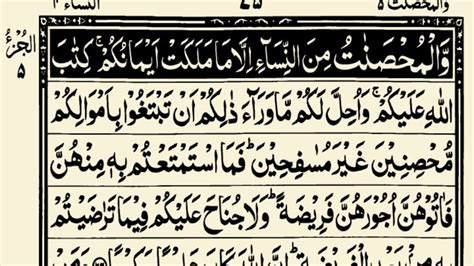 والمحصنت ۵ ٧۵ النساء ۴
الجزء ۵
وَّالْمُحْصَنٰتُ مِنَ النِّسَآءِ اِلَّا مَا مَلَكَتْ اَيْمَانُكُمْ ۚ كِتٰبَ
اللّٰهِ عَلَيْكُمْ ۚ وَاُحِلَّ لَكُمْ مَّا وَرَآءَ ذٰلِكُمْ اَنْ تَبْتَغُوْا بِاَمْوَالِكُمْ
مُّحْصِنِيْنَ غَيْرَ مُسٰفِحِيْنَ ؕ فَمَا اسْتَمْتَعْتُمْ بِهٖ مِنْهُنَّ
فَاٰتُوْهُنَّ اُجُوْرَهُنَّ فَرِيْضَةً ؕ وَلَا جُنَاحَ عَلَيْكُمْ فِيْمَا تَرٰضَيْتُمْ